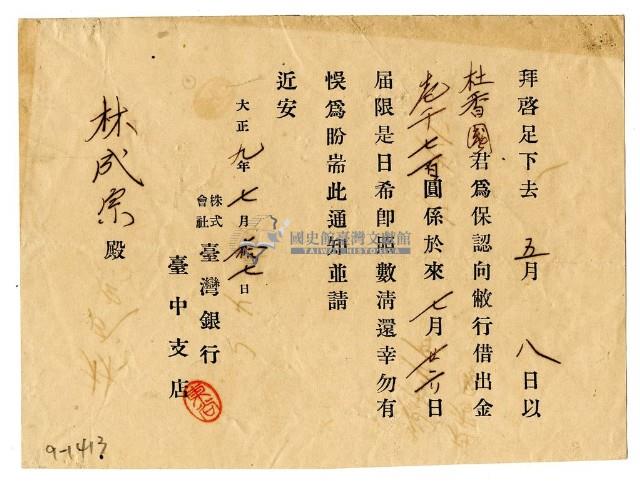 拜啓足下去五月八日以
杜香國君爲保認向敝行借出金
壱千七百圓係於來七月廿六日
届限是日希卽照數淸還幸勿有
悞爲盼耑此通知並請
近安
大正九年七月七日
株式會社臺灣銀行
臺中支店
林成宗殿
國史館臺灣文獻館
TAIWAN HISTORICA
9-1413